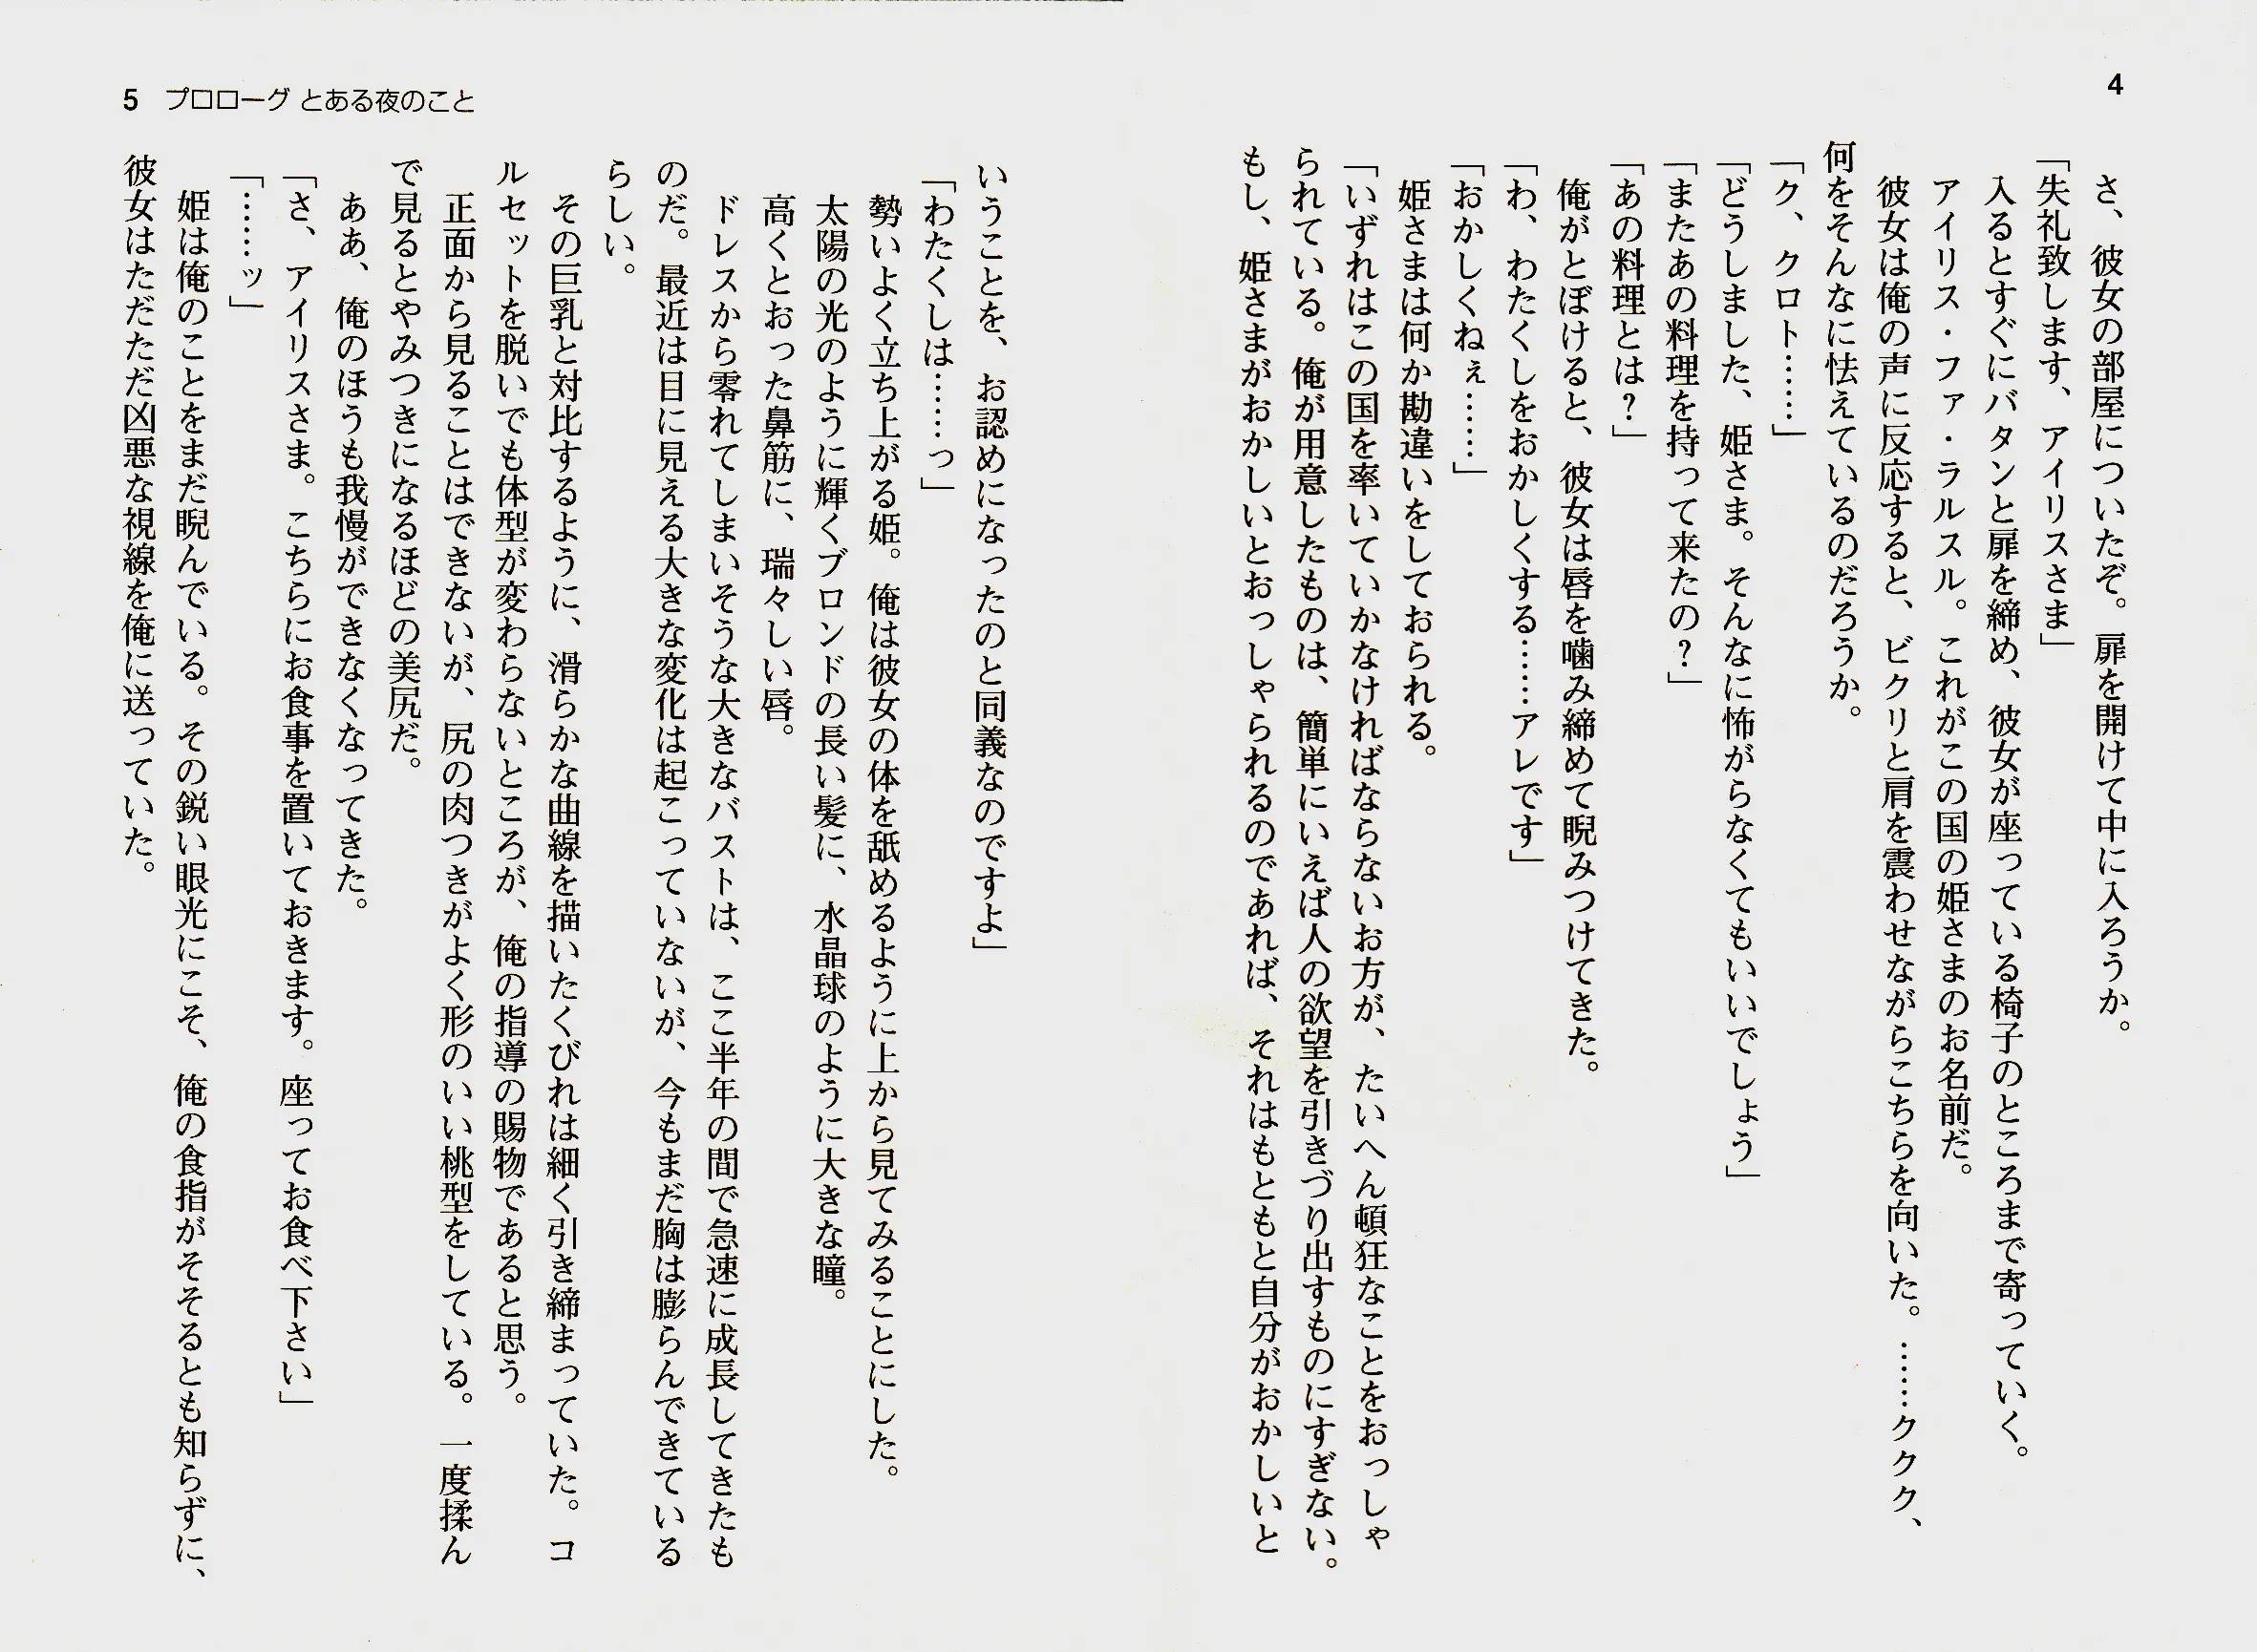 4
さ、彼女の部屋についたぞ。扉を開けて中に入ろうか。
「失礼致します、アイリスさま」
入るとすぐにバタンと扉を締め、彼女が座っている椅子のところまで寄っていく。
アイリス・ファ・ラルスル。これがこの国の姫さまのお名前だ。
彼女は俺の声に反応すると、ビクリと肩を震わせながらこちらを向いた。……ククク、
何をそんなに怯えているのだろうか。
「ク、クロト……」
「どうしました、姫さま。そんなに怖がらなくてもいいでしょう」
「またあの料理を持って来たの?」
「あの料理とは?」
俺がとぼけると、彼女は唇を噛み締めて睨みつけてきた。
「わ、わたくしをおかしくする……アレです」
「おかしくねぇ……」
姫さまは何か勘違いをしておられる。
「いずれはこの国を率いていかなければならないお方が、たいへん頓狂なことをおっしゃ
られている。俺が用意したものは、簡単にいえば人の欲望を引きづり出すものにすぎない。
もし、姫さまがおかしいとおっしゃられるのであれば、それはもともと自分がおかしいと
5 プロローグ とある夜のこと
いうことを、お認めになったのと同義なのですよ」
「わたくしは……っ」
勢いよく立ち上がる姫。俺は彼女の体を舐めるように上から見てみることにした。
太陽の光のように輝くブロンドの長い髪に、水晶球のように大きな瞳。
高くとおった鼻筋に、瑞々しい唇。
ドレスから零れてしまいそうな大きなバストは、ここ半年の間で急速に成長してきたも
のだ。最近は目に見える大きな変化は起こっていないが、今もまだ胸は膨らんできている
らしい。
その巨乳と対比するように、滑らかな曲線を描いたくびれは細く引き締まっていた。コ
ルセットを脱いでも体型が変わらないところが、俺の指導の賜物であると思う。
正面から見ることはできないが、尻の肉つきがよく形のいい桃型をしている。一度揉ん
で見るとやみつきになるほどの美尻だ。
ああ、俺のほうも我慢ができなくなってきた。
「さ、アイリスさま。こちらにお食事を置いておきます。座ってお食べ下さい」
「……ッ」
姫は俺のことをまだ睨んでいる。その鋭い眼光にこそ、俺の食指がそそるとも知らずに、
彼女はただただ凶悪な視線を俺に送っていた。